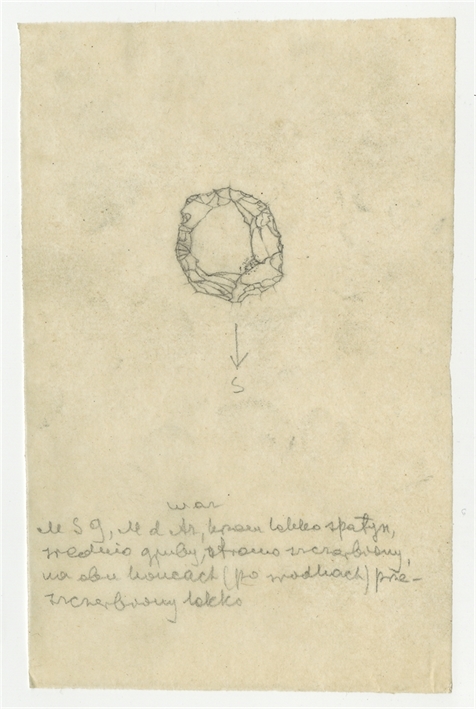 S
war
M S G, M d Az, krzem lekko spatyn,
średnio gruby, stromo szczerbiony,
na obu końcach (po środkach) prze-
szczerbiony lekko